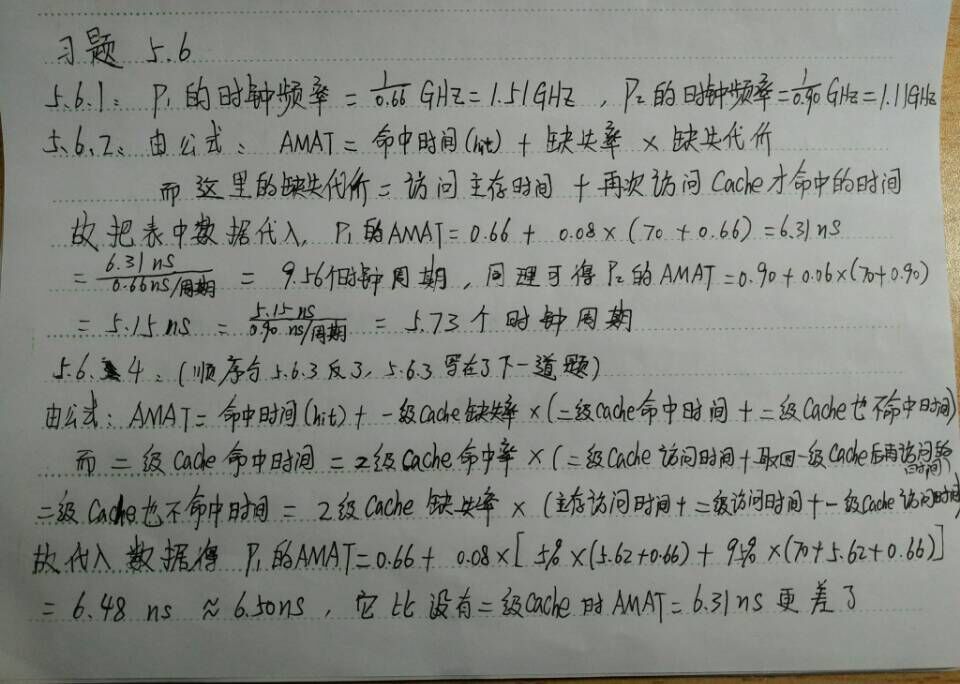 习题 5.6
5.6.1: P₁的时钟频率 = 1/0.66 GHz = 1.51GHz , P₂的时钟频率 = 1/0.90 GHz = 1.11GHz
5.6.2: 由公式: AMAT = 命中时间(hit) + 缺失率 × 缺失代价
而这里的缺失代价 = 访问主存时间 + 再次访问Cache才命中的时间
故把表中数据代入, P₁的AMAT = 0.66 + 0.08×(70+0.66) = 6.31 ns
= 6.31 ns/0.66ns/周期 = 9.56个时钟周期, 同理可得P₂的AMAT = 0.90+0.06×(70+0.90)
= 5.15 ns = 5.15 ns/0.90 ns/周期 = 5.73个时钟周期
5.6.4: (顺序与5.6.3反了, 5.6.3写在了下一道题)
由公式: AMAT = 命中时间(hit) + 一级Cache缺失率 × (二级cache命中时间 + 二级Cache也不命中时间)
而二级Cache命中时间 = 2级Cache命中率 × (二级Cache访问时间 + 取回一级Cache后再访问的时间)
二级Cache也不命中时间 = 2级Cache缺失率 × (主存访问时间 + 二级访问时间 + 一级Cache访问时间)
故代入数据得 P₁的AMAT = 0.66 + 0.08×[5%×(5.62+0.66) + 95%×(70+5.62+0.66)]
= 6.48 ns ≈ 6.50ns, 它比没有二级Cache时AMAT = 6.31 ns更差了